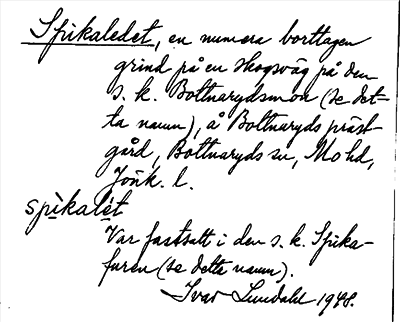 Spikaledet, en numera borttagen
grind på en skogsväg på den
s. k. Bottnarydsmon (se det-
ta namn), å Bottnaryds präst-
gård, Bottnaryds sn, Mo hd,
Jönk. l.
spìkalèt
Var fastsatt i den s. k. Spika-
furen (se detta namn).
Ivar Lundahl 1948.